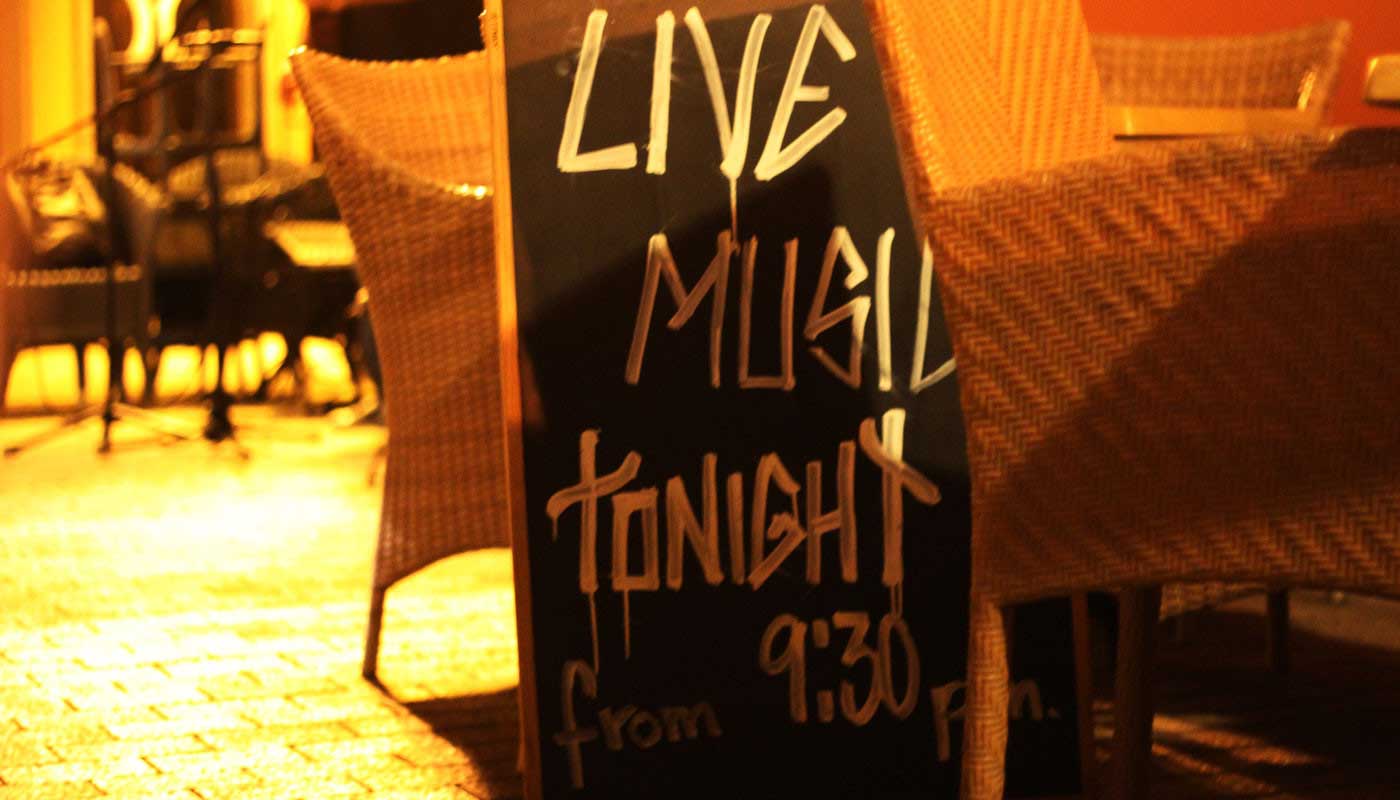 LIVE
MUSIC
TONIGHT
from 9:30 p.m.